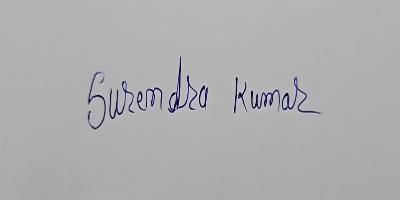 Surendra Kumar